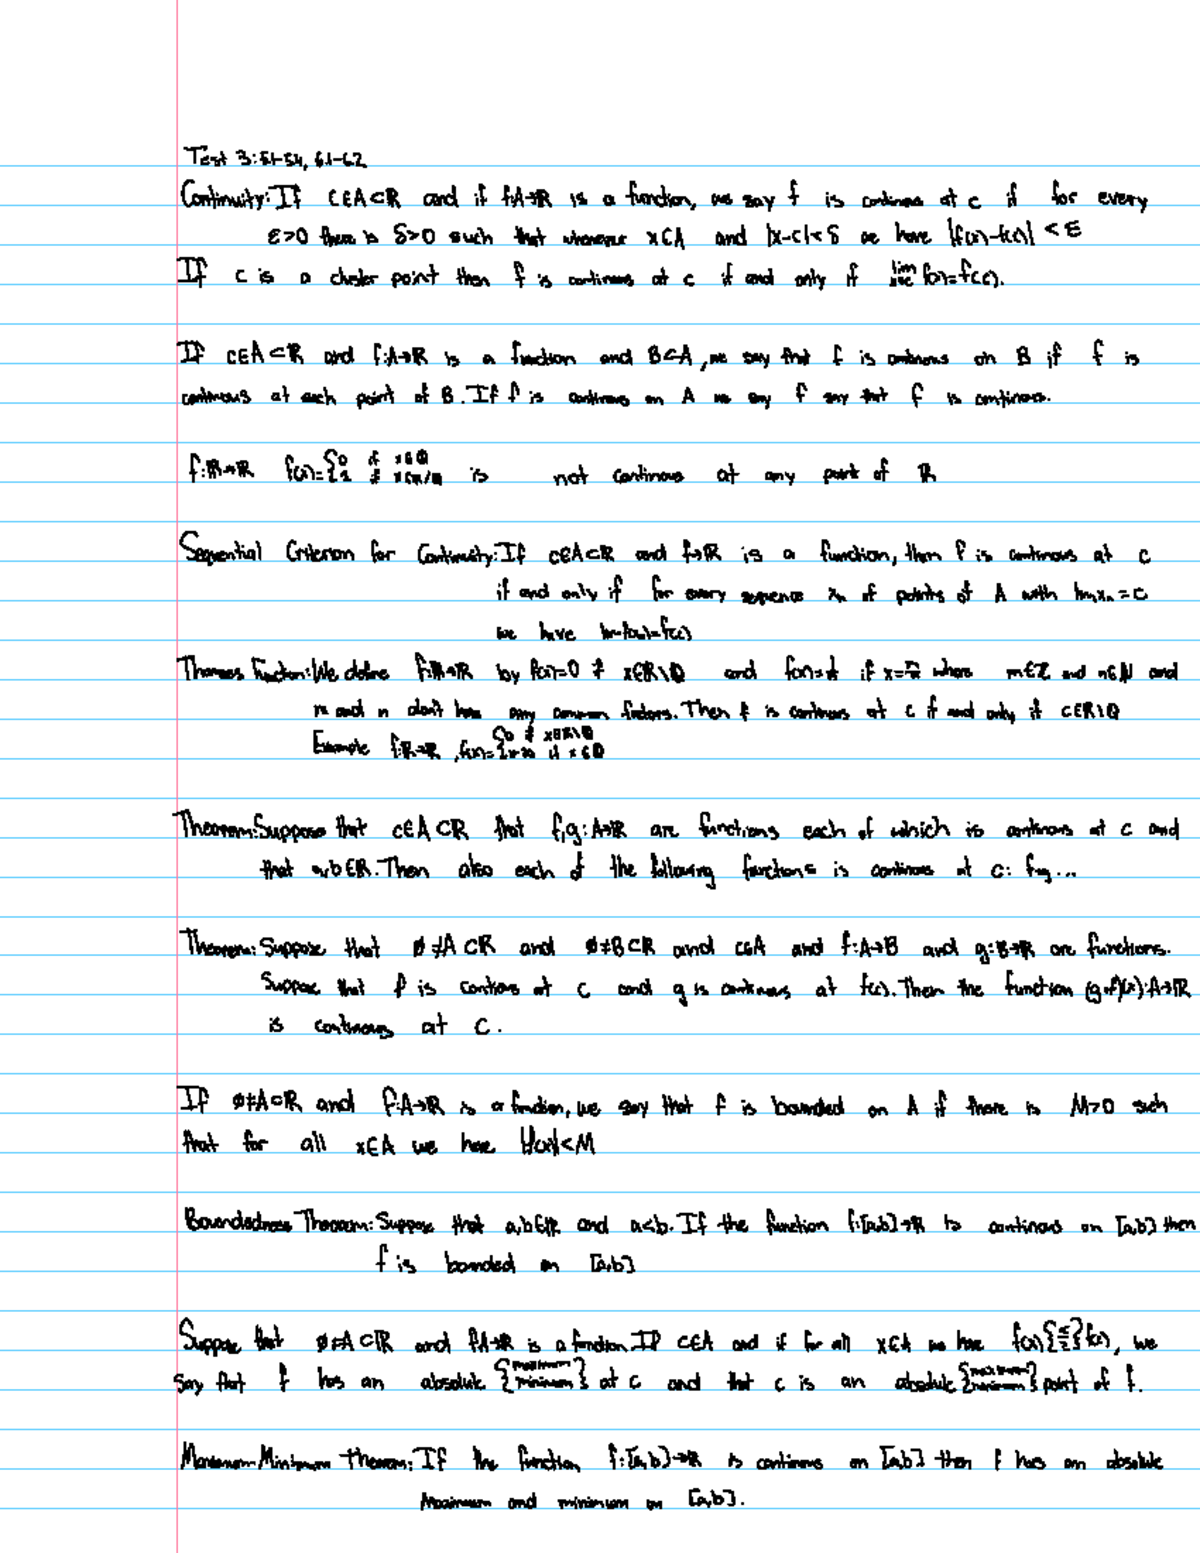 Test 3: 5.1-5.4, 6.1-6.2
Continuity: If c∈A⊂ℝ and if f:A→ℝ is a function, we say f is continous at c if for every
ε>0 there is δ>0 such that whenever x∈A and |x-c|<δ we have |f(x)-f(c)|<ε
If c is a cluster point then f is continous at c if and only if lim x→c f(x)=f(c).
If c∈A⊂ℝ and f:A→ℝ is a function and B⊂A, we say that f is continous on B if f is
continous at each point of B. If f is continous on A we say f say that f is continous.
f:ℝ→ℝ f(x)={0 if x∈ℚ 1 if x∈ℝ/ℚ is not continous at any point of ℝ
Sequential Criterion for Continuity: If c∈A⊂ℝ and f→ℝ is a function, then f is continous at c
if and only if for every sequence xn of points of A with lim xn=c
we have lim f(xn)=f(c)
Thomaes Function: We define f:ℝ→ℝ by f(x)=0 if x∈ℝ\ℚ and f(x)=1/n if x=m/n where m∈ℤ and n∈ℕ and
m and n don't have any common factors. Then f is continous at c if and only if c∈ℝ\ℚ
Example f:ℝ→ℝ, f(x)={0 if x∈ℝ\ℚ if x∈ℚ
Theorem: Suppose that c∈A⊂ℝ that f,g:A→ℝ are functions each of which is continous at c and
that a,b∈ℝ. Then also each of the following functions is continous at c: ...
Theorem: Suppose that ∅≠A⊂ℝ and ∅≠B⊂ℝ and c∈A and f:A→B and g:B→ℝ are functions.
Suppose that f is continous at c and g is continous at f(c). Then the function (g∘f)(x):A→ℝ
is continous at c.
If ∅≠A⊂ℝ and f:A→ℝ is a function, we say that f is bounded on A if there is M>0 such
that for all x∈A we have |f(x)|<M
Boundedness Theorem: Suppose that a,b∈ℝ and a<b. If the function f:[a,b]→ℝ is continous on [a,b] then
f is bounded on [a,b]
Suppose that ∅≠A⊂ℝ and f:A→ℝ is a function. If c∈A and if for all x∈A we have f(x){≤ ≥}f(c), we
say that f has an absolute {maximum minimum} at c and that c is an absolute {maximum minimum} point of f.
Maximum-Minimum Theorem: If the function f:[a,b]→ℝ is continous on [a,b] then f has an absolute
maximum and minimum on [a,b].